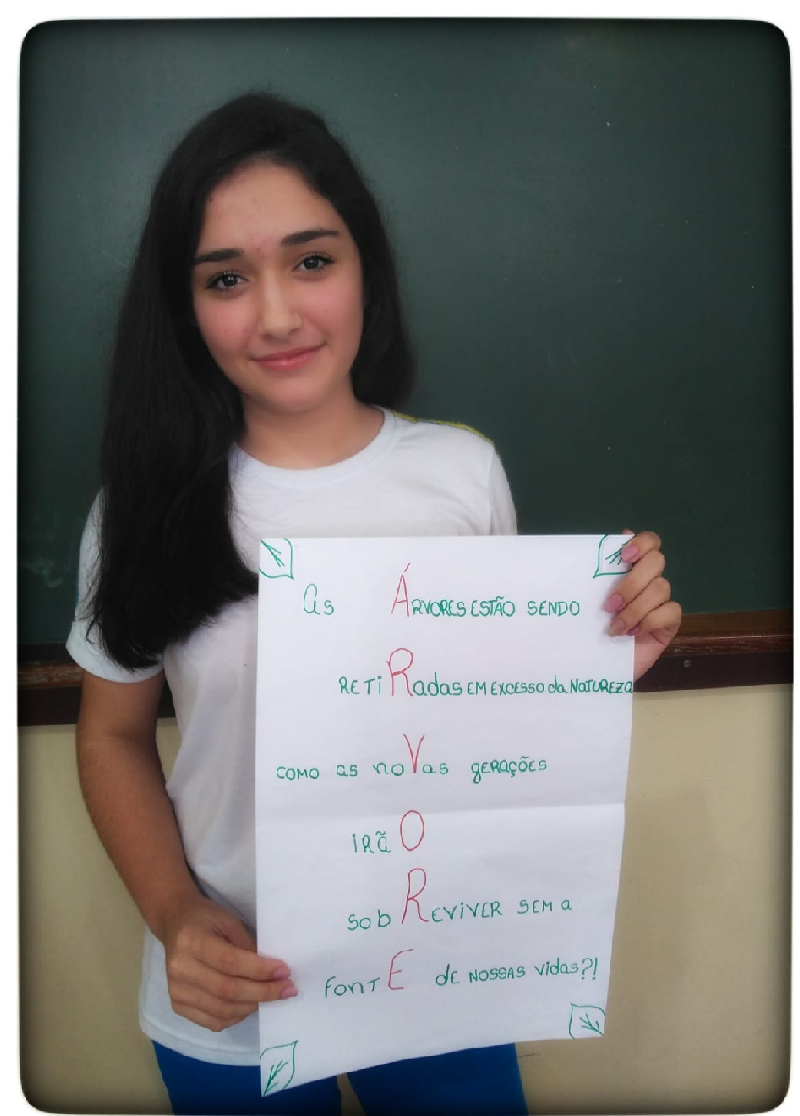 As ÁRVORES ESTÃO SENDO
RETIRadas EM EXCESSO da NATUREZA
COMO as noVas gERAÇÕES
IRÃO
sobREVIVER SEM a
FonTE dE NOSSAS Vidas?!